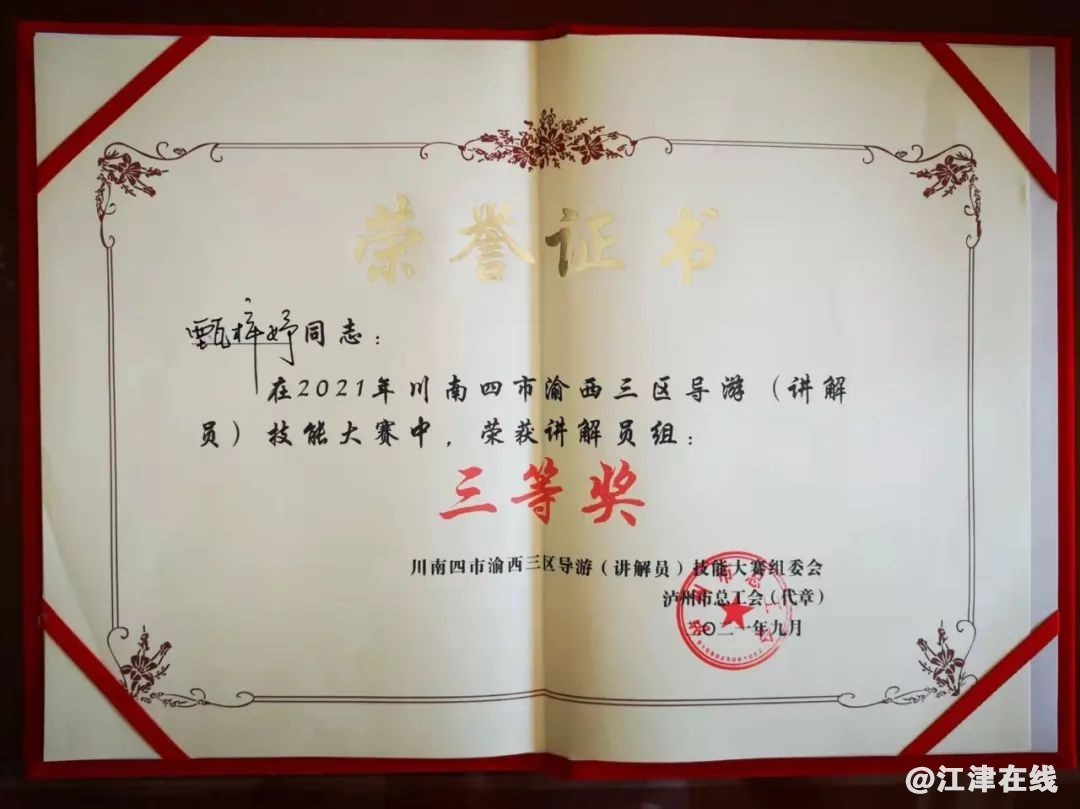 荣誉证书
甄梓妤同志：
在2021年川南四市渝西三区导游（讲解
员）技能大赛中，荣获讲解员组：
三等奖
川南四市渝西三区导游（讲解员）技能大赛组委会
泸州市总工会（代章）
二〇二一年九月
泸州市总工会
@江津在线